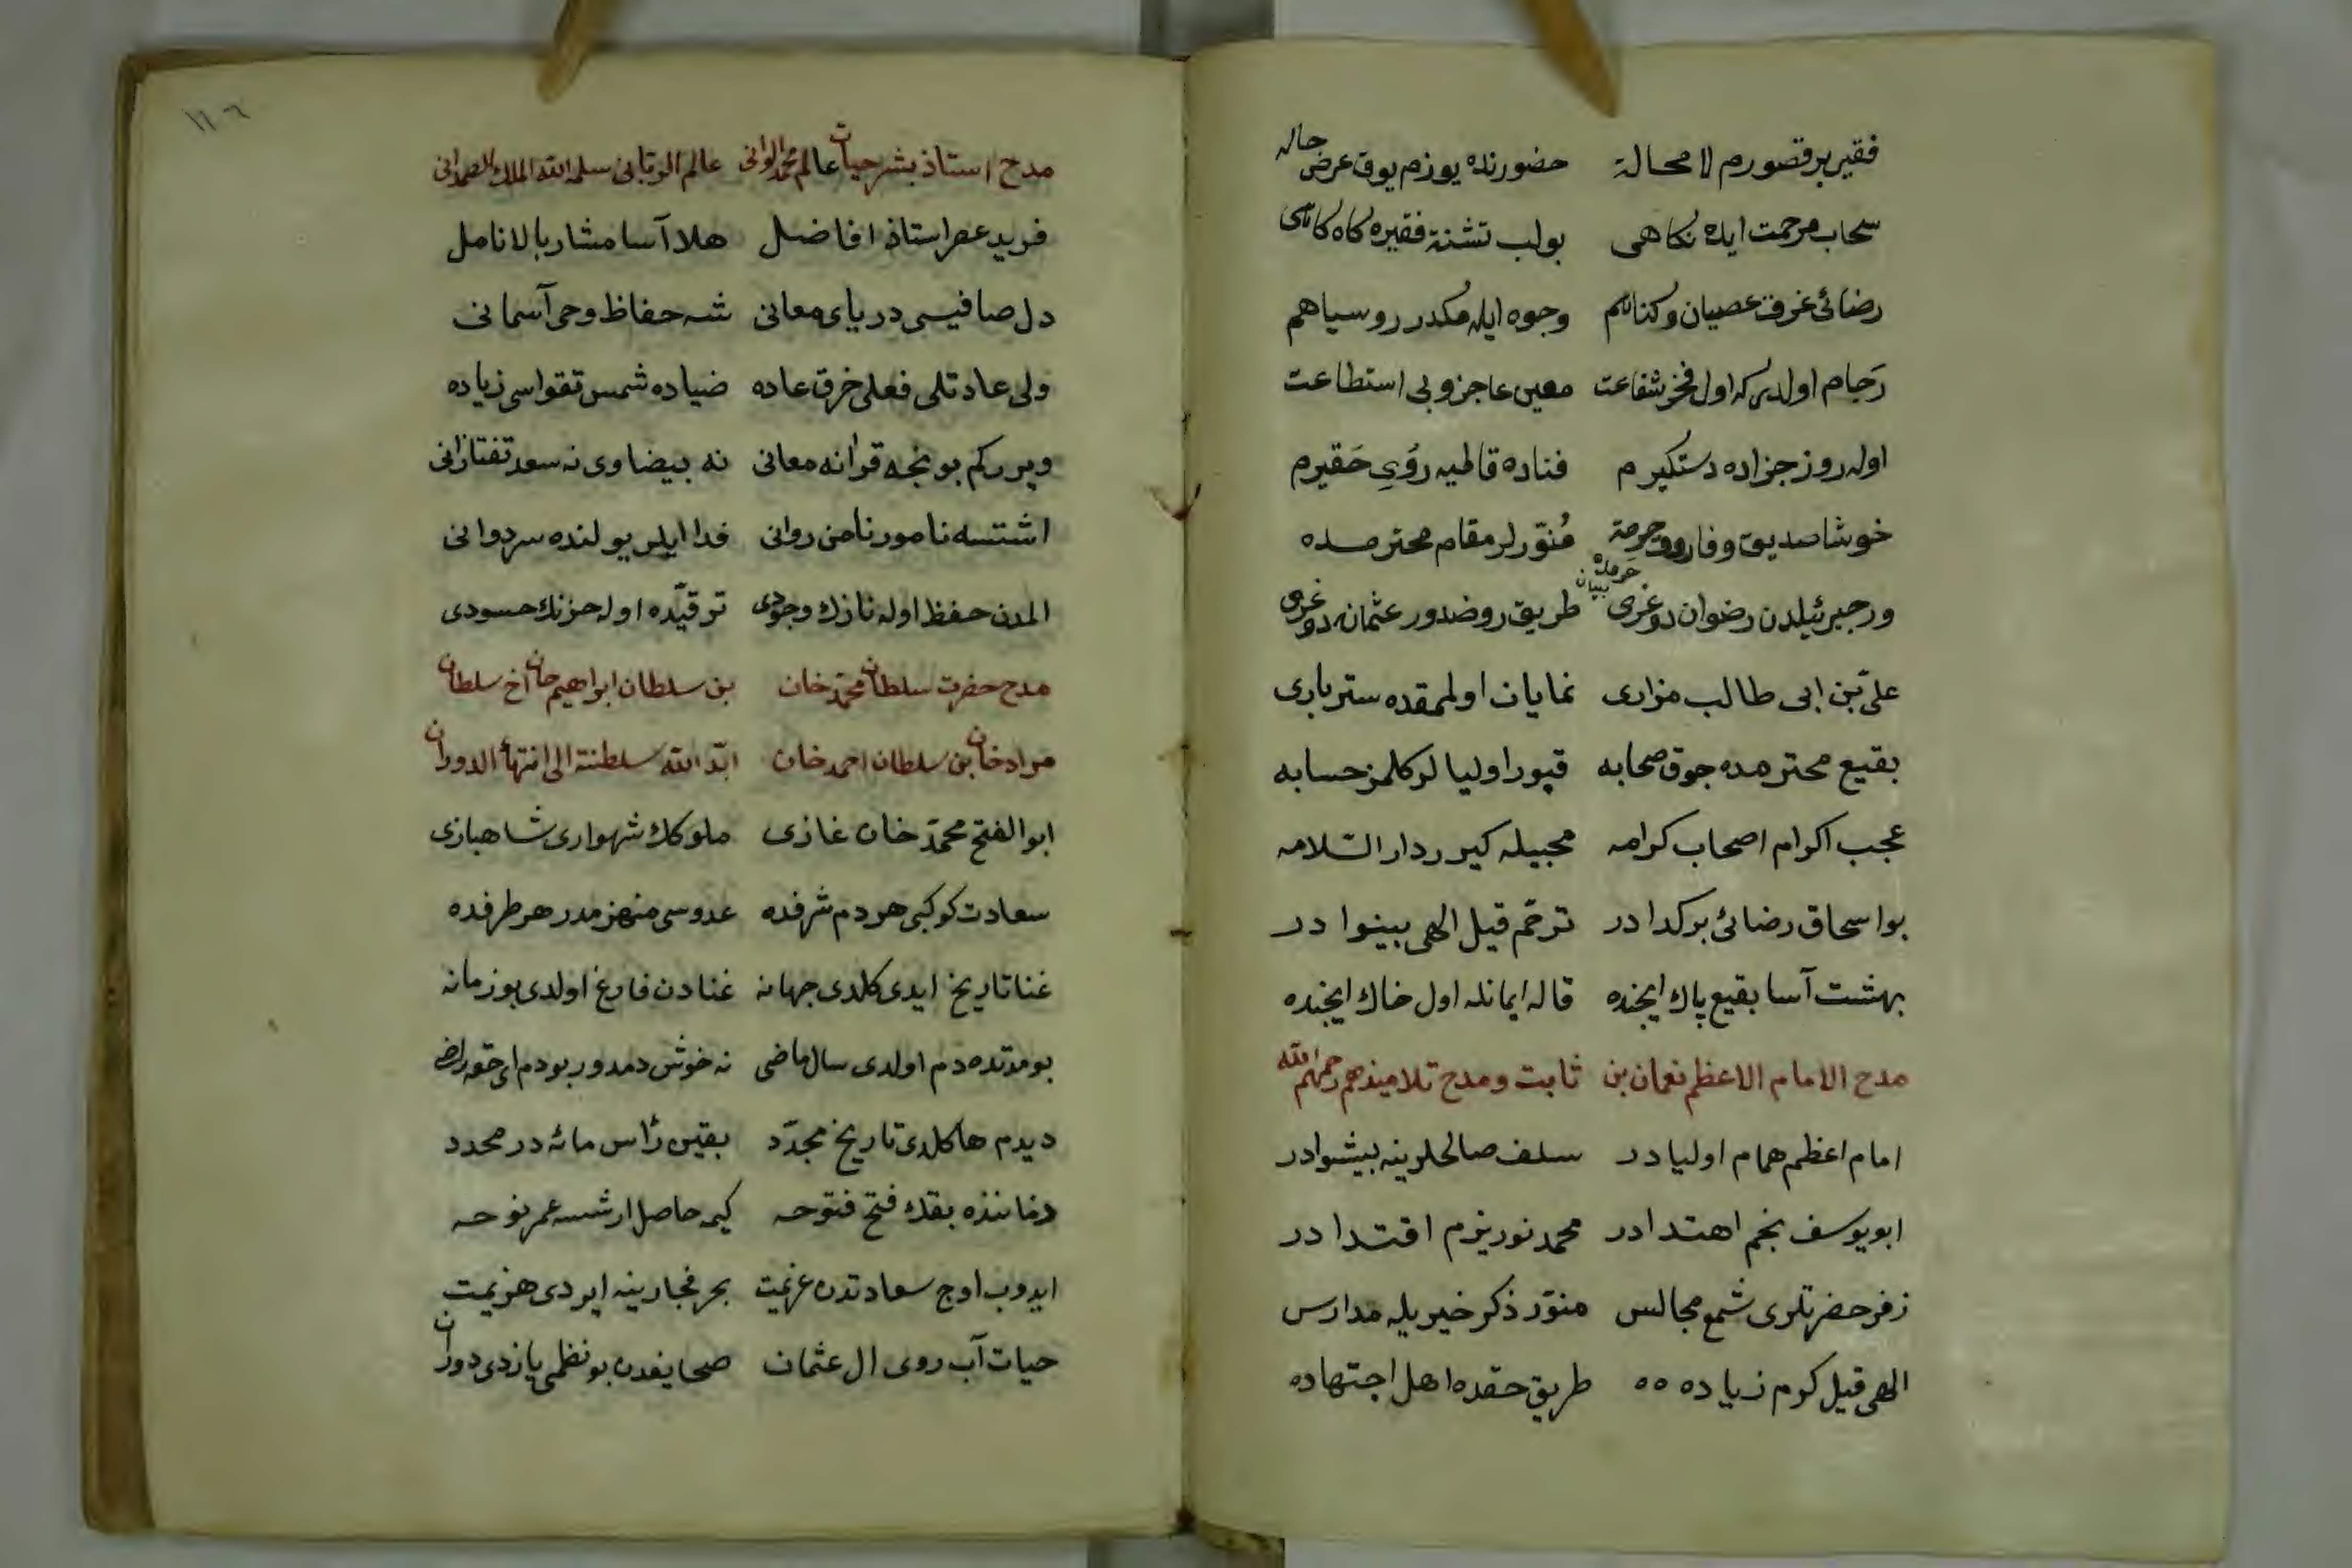 فقیر پر قصورم لا محالة حضورنده یوزم یوق عرض حاله
سحاب مرحمت ایله نكاهی بو لب تشنۀ فقیره كاه كاهی
رضائی غرق عصیان و كناهم وجوه ایله مكدر رو سیاهم
رَجام اولدر كه اول فخر شفاعت معین عاجز و بی استطاعت
اوله روز جزاده دستكیرم فناده قالمیه رَوِی حَقیرم
خوشا صدیق و فاروق حرمة مُنوّرلر مقام محترمده
حرمله بیان
ور جبرئیلدن رضوان دوغری طریق روضدور عثمانه دوغری
علیّ بن ابی طالب مزاری نمایان اولمقده ستر باری
بقیع محترمده جوق صحابه قبور اولیا لر كلمز حسابه
عجب اكرام اصحاب كرامه محبیله كیرر دار السّلامه
بو اسحاق رضائی بر كدا در ترحّم قیل الهی بینوا در
بهشت آسا بقیع پاك ایچنده قاله ایمانله اول خاك ایچنده
مدح الامام الاعظم نعمان بن ثابت و مدح تلامیذهم رحمهم الله
امام اعظم همام اولیا در سلف صالحلرینه پیشوا در
ابو یوسف نجم اهتدا در محمد نور بزم اقتدا در
زفر حضرتلری شمع مجالس منوّر ذكر خیریله مدارس
الهی قیل كرم زیاده ٥٥ طریق حقده اهل اجتهاده
١١٠٦
مدح استاذ بشر حیات عالم محمد الوانی عالم الربانی سلمه الله الملك الصمدانی
فرید عصر استاذ افاضل هلال آسا مشار بالانامل
دل صافیسی دریای معانی شه حفاظ وحی آسمانی
ولی عادتلی فعلی خرق عاده ضیاده شمس تقواسی زیاده
ویررکم بو نجه قرانه معانی نه بیضاوی نه سعد تفتازانی
اشتسه نامور نامن روانی فدا ایلر یولنده سر دوانی
المدن حفظ اوله نازك وجودی ترقیّده اوله حزنك حسودی
مدح حضرت سلطان محمّد خان بن سلطان ابراهیم خان اخ سلطان
مراد خان بن سلطان احمد خان ابّد الله سلطنته الی انتهاء الدوران
ابو الفتح محمّد خان غازی ملوكك شهواری شاهبازی
سعادت كوكبی هر دم شرفده عدوسی منهزمدر هر طرفده
غنا تاریخ ایدی كلدی جهانه غنادن فارغ اولدی بو زمانه
بو مدّتده دم اولدی سال ماضی نه خوش دمدور بو دم ای حقه راضی
دیدم ها كلدی تاریخ مجدّد بقین رأس مائه در محدد
دخا نذه بقك فتح فتوحه كیمه حاصل ارشسه عمر نوحه
ایدوب اوج سعادتدن عزیمت بحر فجارینه ایردی هزیمت
حیات آب روی ال عثمان صحایفدن بو نظمی یازدی دوران